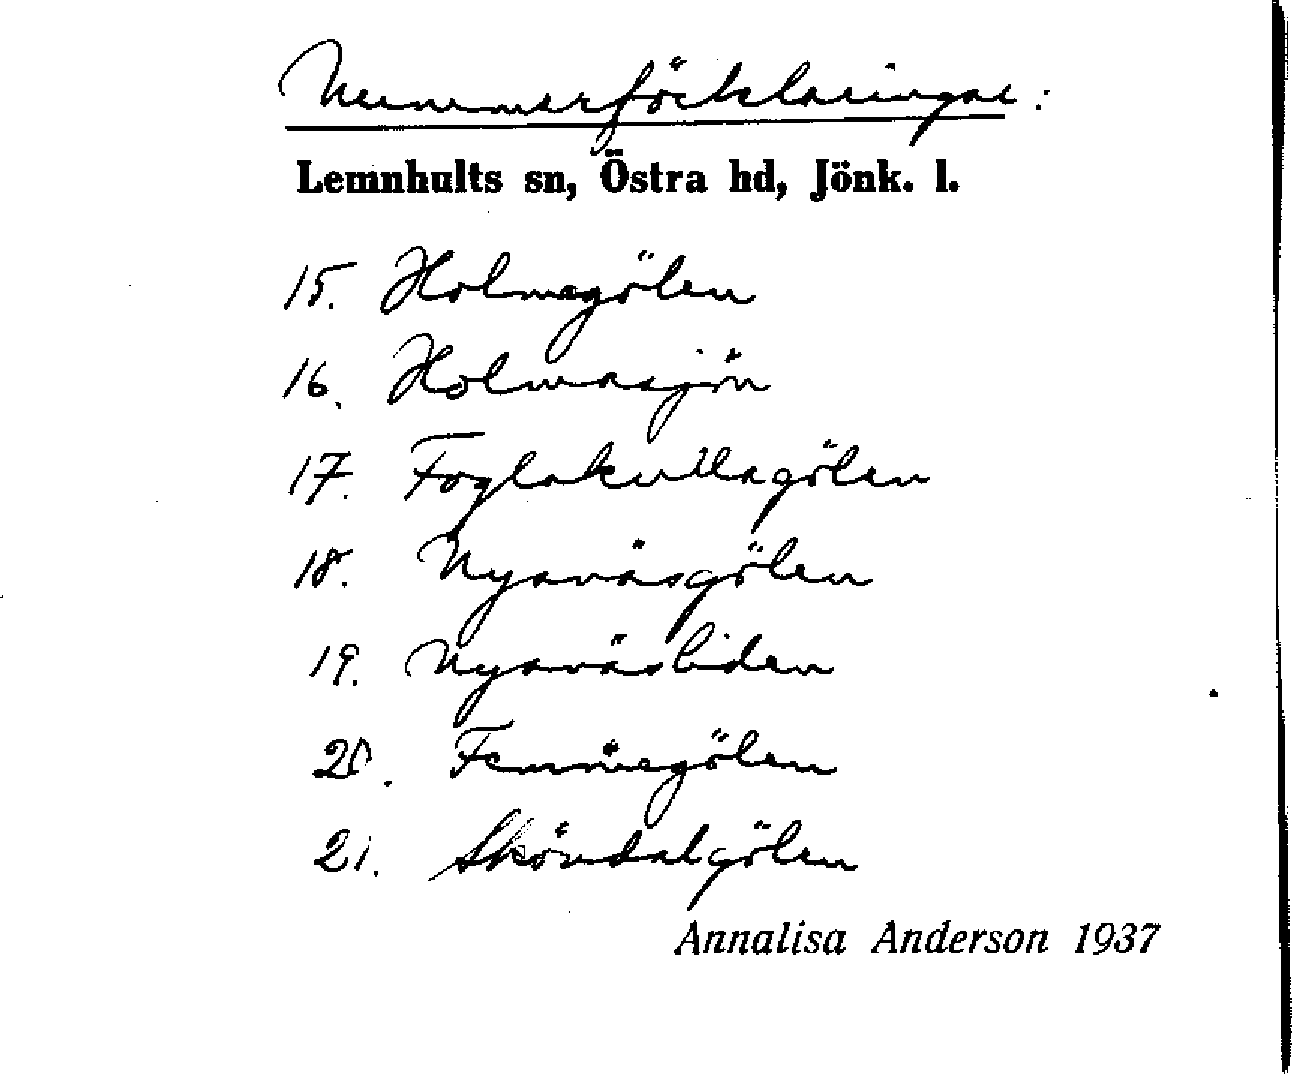 Nummerförklaringar:
Lemnhults sn, Östra hd, Jönk. l.
15. Holmagölen
16. Holmasjön
17. Foglakullagölen
18. Nyanäsgölen
19. Nyanäsliden
20.
21. Skövdalgölen
Annalisa Anderson 1937